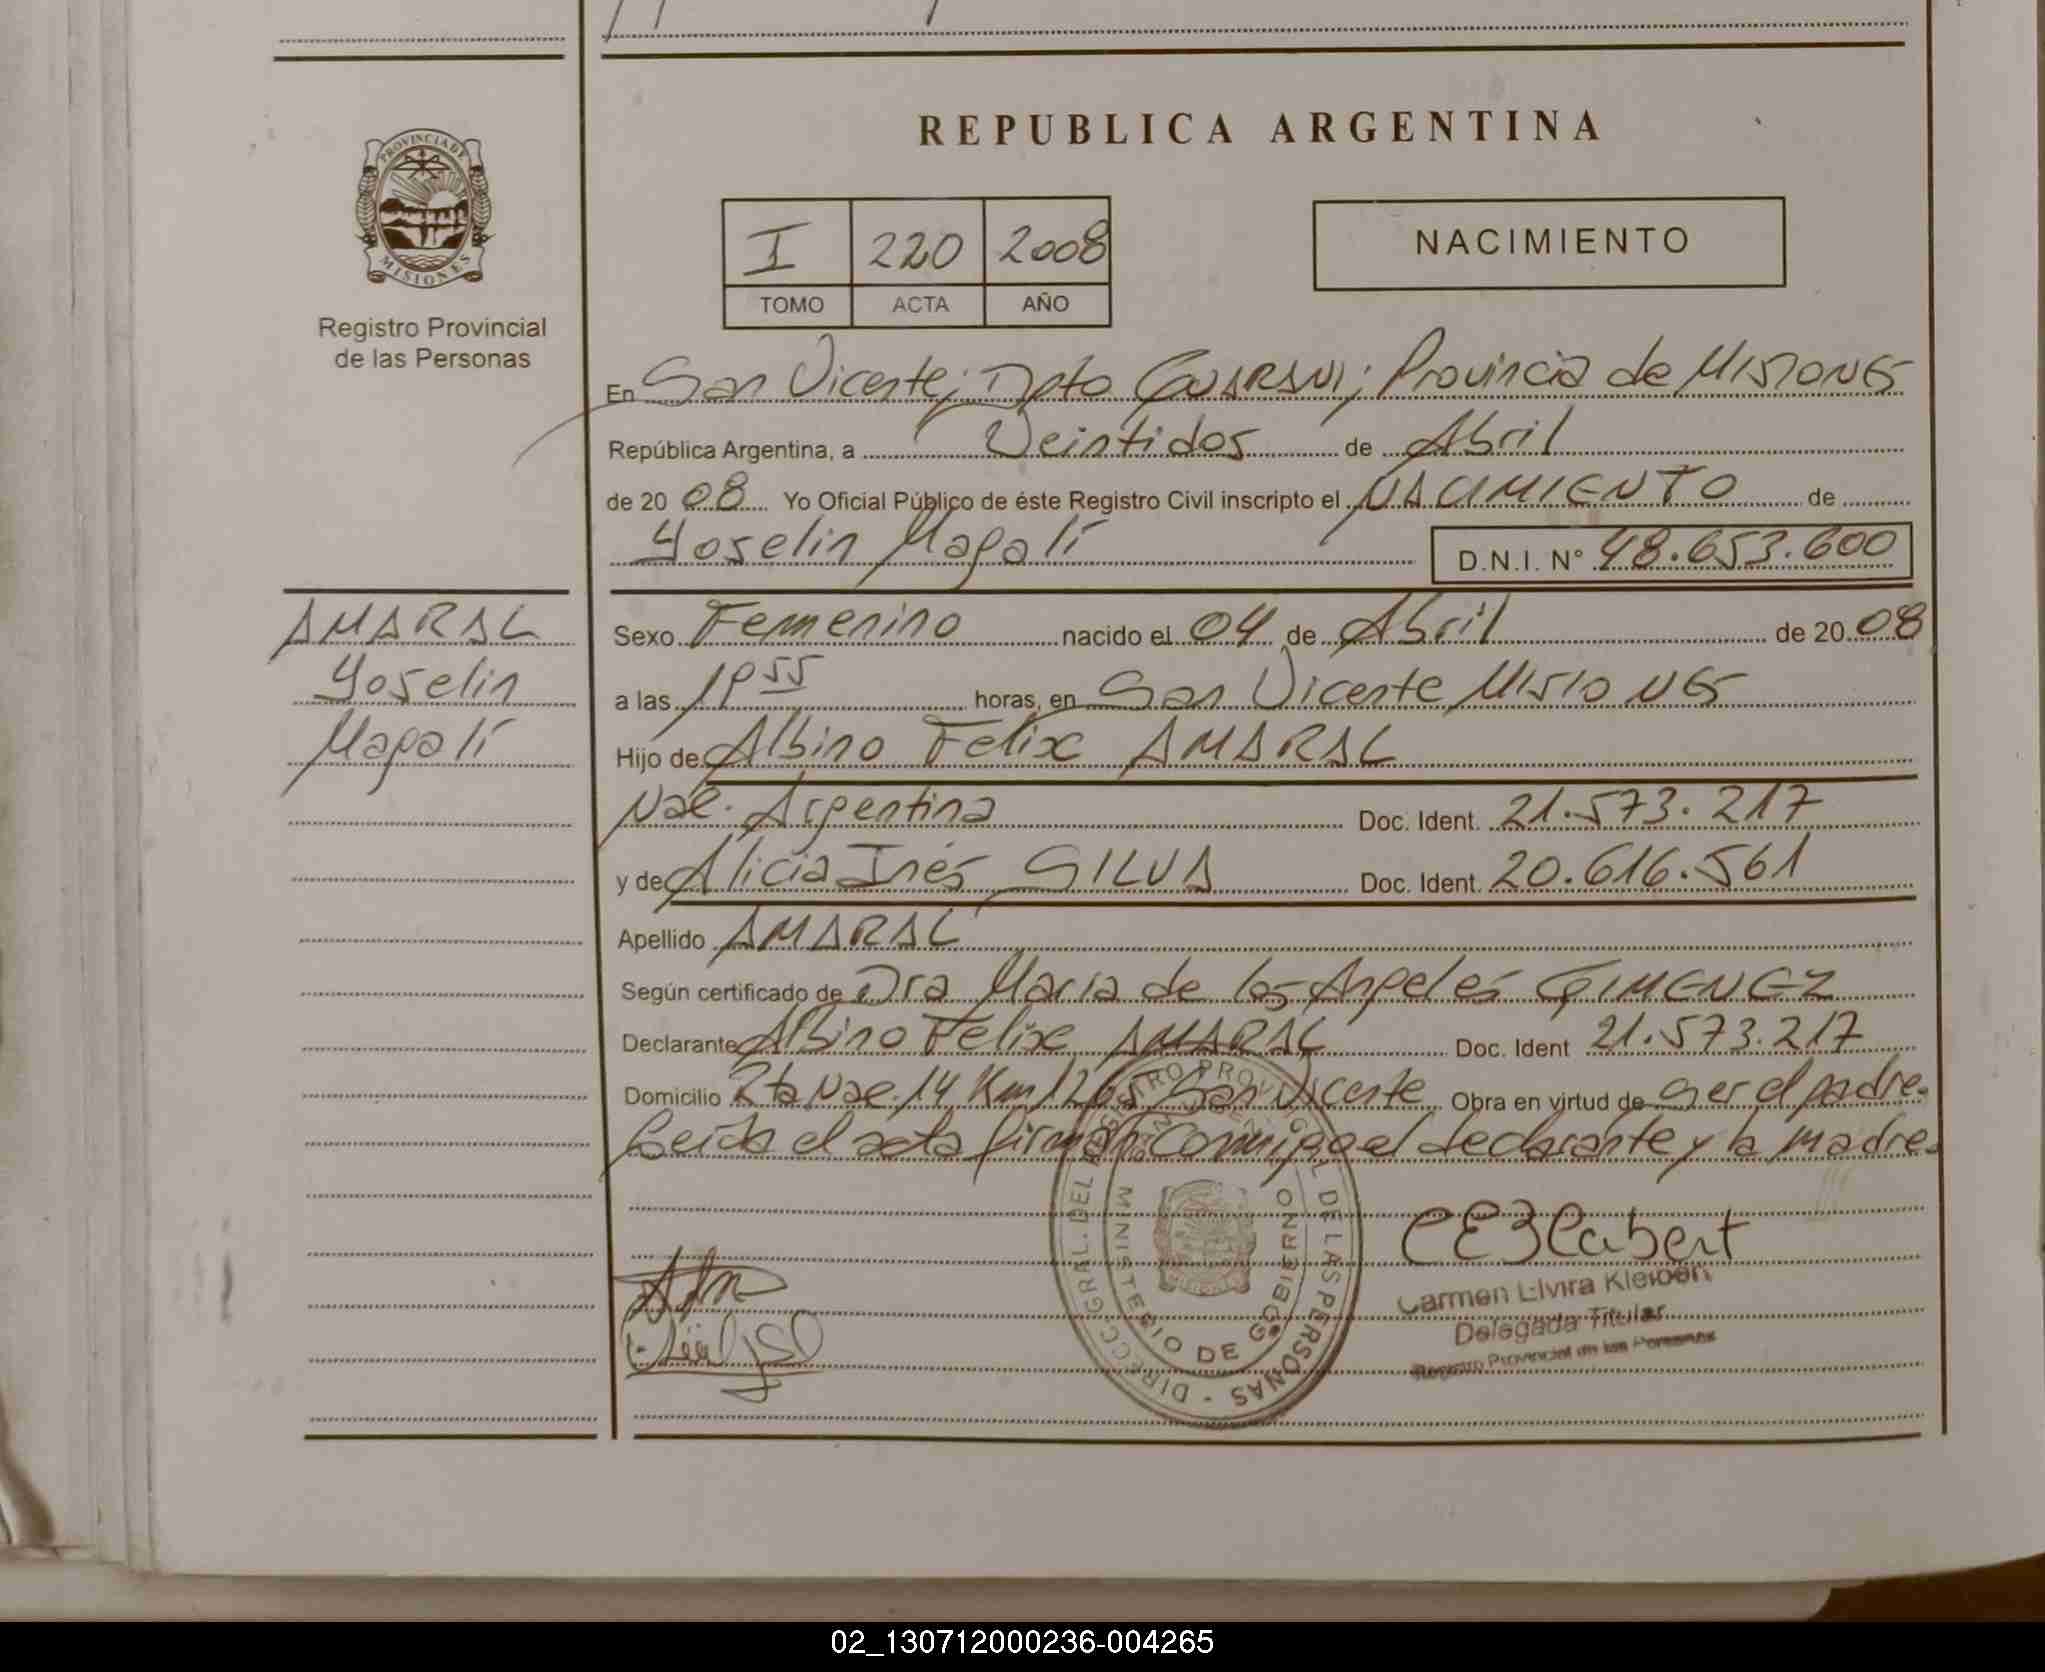 REPUBLICA ARGENTINA
PROVINCIA DE
MISIONES
Registro Provincial
de las Personas
I 220 2008
TOMO ACTA AÑO
NACIMIENTO
En San Vicente; Dpto GUARANI; Provincia de MISIONES
República Argentina, a Veintidos de Abril
de 20 08 Yo Oficial Público de éste Registro Civil inscripto el NACIMIENTO de
Yoselin Magalí D.N.I. N° 48.653.600
AMARAL
Yoselin
Magalí
Sexo Femenino nacido el 04 de Abril de 20 08
a las 19 55 horas, en San Vicente MISIONES
Hijo de Albino Felix AMARAL
Nac. Argentina Doc. Ident. 21.573.217
y de Alicia Inés SILVA Doc. Ident. 20.616.561
Apellido AMARAL
Según certificado de Dra Maria de los Angeles GIMENEZ
Declarante Albino Felix AMARAL Doc. Ident 21.573.217
Domicilio Rta Nac. 14 Km San Vicente Obra en virtud de ser el padre.
Leida el acta firman conmigo el declarante y la madre.
DIRECC. GRAL. DEL REGISTRO PROVINCIAL DE LAS PERSONAS -
MINISTERIO DE GOBIERNO
Carmen Elvira
Delegada Titular
Registro Provincial de las Personas
02_130712000236-004265